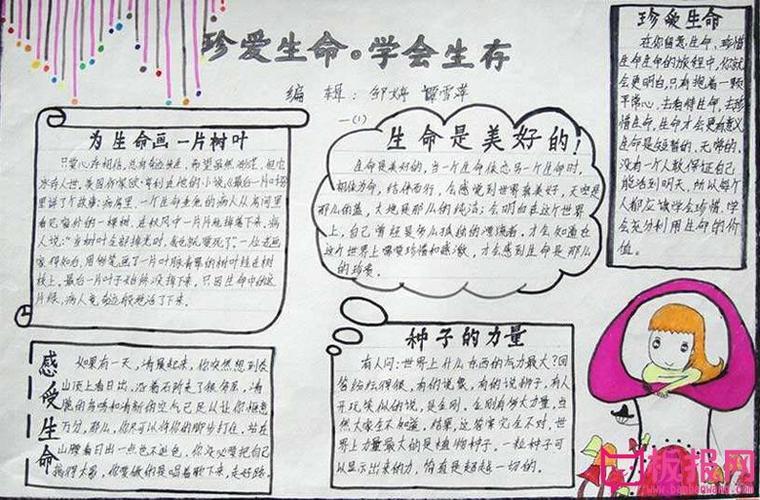 珍爱生命。学会生存
编 辑：邹婷 谭雪萍
一(1)
珍爱生命
在你留意生命，珍惜
生命生命的旅程中，你就
会更明白，只有抱着一颗
平常心，去看待生命，去珍
惜生命，生命才会更有意义
生命是短暂的，无常的，
没有一个人敢保证自己
能活到明天，所以每个
人都应该学会珍惜，学
会充分利用生命的价
值。
为生命画一片树叶
只要心存相信，总有奇迹发生，希望虽然渺茫，但它
永存人世，美国作家欧·亨利在他的小说《最后一片叶》
里讲了个故事：病房里，一个生命垂危的病人从房间里
看见窗外的一棵树，在秋风中一片片地掉落下来，病
人说："当树叶全部掉光时，我也就要死了。"一位老画
家得知后，用彩笔画了一片叶脉青翠的树叶挂在树
枝上。最后一片叶子始终没掉下来，只因生命中的这
片绿，病人竟奇迹般地活了下来。
生命是美好的！
生命是美好的，当一个生命依恋另一个生命时，
相依为命，结伴而行，会感觉到世界真美好，天空是
那么的蓝，大地是那么的纯洁；会明白在这个世界
上，自己曾经是多么孤独的漂流者，才会知道在
这个世界上哪里珍惜和感激，才会感到生命是那么
的珍贵。
感受生命
如果有一天，清晨起来，你突然想到泰
山顶上看日出，沿着石阶走了很多层，清
脆的鸟鸣和清新的空气已足以让你惬意
万分，那么，你尽可以将你的脚步打住，站在
山腰看日出一点也不逊色，你没必要把自己
搞得太累，你要做的是唱着歌下来，走好路。
种子的力量
有人问：世界上什么东西的气力最大？回
答纷纭得很，有的说象，有的说狮子，有人
开玩笑似的说，是金刚，金刚有多大力量，当
然大家全不知道。结果，这答案完全不对，世
界上力量最大的是植物种子。一粒种子可
以显示出来的力，简直是超越一切的。
板报网
www.banbaowang.com